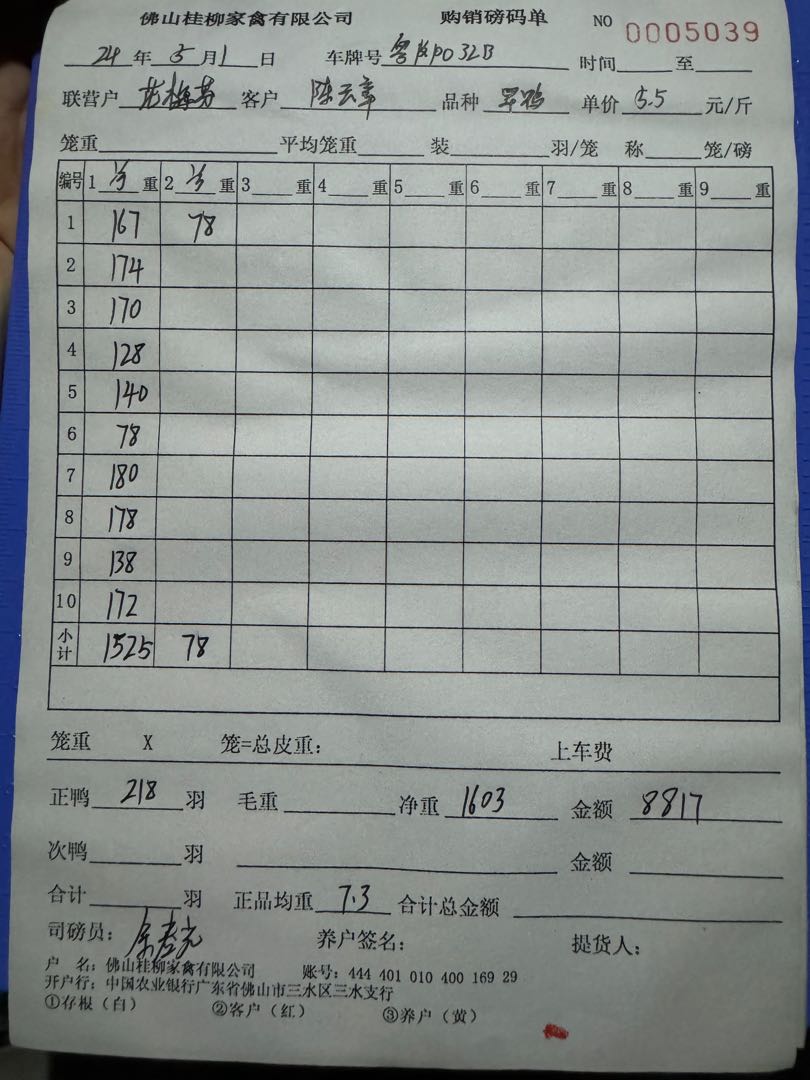 佛山桂柳家禽有限公司 购销磅码单 NO 0005039
24 年 5 月 1 日 车牌号 时间 至
联营户 客户 陈云章 品种 单价 5.5 元/斤
笼重 平均笼重 装 羽/笼 称 笼/磅
编号 1 重 2 重 3 重 4 重 5 重 6 重 7 重 8 重 9 重
1 167 78
2 174
3 170
4 128
5 140
6 78
7 180
8 178
9 138
10 172
小计 1525 78
笼重 X 笼=总皮重: 上车费
正鸭 218 羽 毛重 净重 1603 金额 8817
次鸭 羽 金额
合计 羽 正品均重 7.3 合计总金额
司磅员: 养户签名: 提货人:
户 名: 佛山桂柳家禽有限公司 账号: 444 401 010 400 169 29
开户行: 中国农业银行广东省佛山市三水区三水支行
①存根(白) ②客户(红) ③养户(黄)